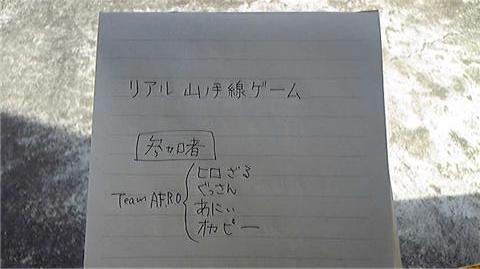 リアル山手線ゲーム
参加者
ヒロざる
ぐっさん
Team AFRO
あにぃ
オカピー